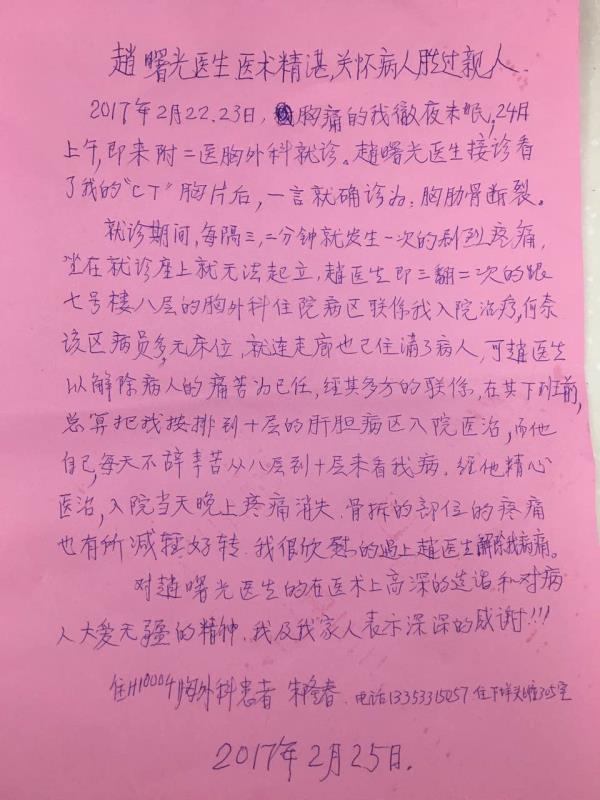 趙曙光医生医术精湛,关怀病人胜过亲人.
2017年2月22.23日,胸痛的我徹夜未眠,24月
上午,即来附二医胸外科就诊。趙曙光医生接诊看
了我的“CT”胸片后,一言就确诊为:胸肋骨断裂。
就诊期间,每隔三,二分钟就发生一次的剧烈疼痛,
坐在就诊座上就无法起立,趙医生即三翻二次的跟
七号楼八层的胸外科住院病区联係我入院治疗,何奈
该区病员多,无床位,就连走廊也已住满了病人,可趙医生
以解除病人的痛苦为已任,经其多方的联係,在其下班前,
总算把我按排到十层的肝胆病区入院医治,而他
自己,每天不辞辛苦从八层到十层来看我病.经他精心
医治,入院当天晚上疼痛消失.骨拆的部位的疼痛
也有所减轻好转.我很欣慰的遇上趙医生解除我病痛。
对趙曙光医生的在医术上高深的造诣和对病
人大爱无疆的精神.我及我家人表示深深的感谢!!!
住H10004胸外科患者 朱春.电话13353315057住下305室
2017年2月25日.